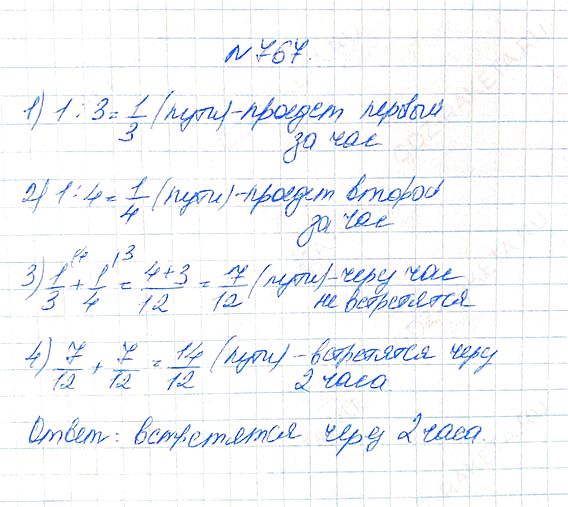 № 767.
1) 1 : 3 = 1/3 (пути) - проедет первый
за час
2) 1 : 4 = 1/4 (пути) - проедет второй
за час
3) 1/3 + 1/4 = (4+3)/12 = 7/12 (пути) - через час
не встретятся
4) 7/12 + 7/12 = 14/12 (пути) - встретятся через
2 часа
Ответ: встретятся через 2 часа.